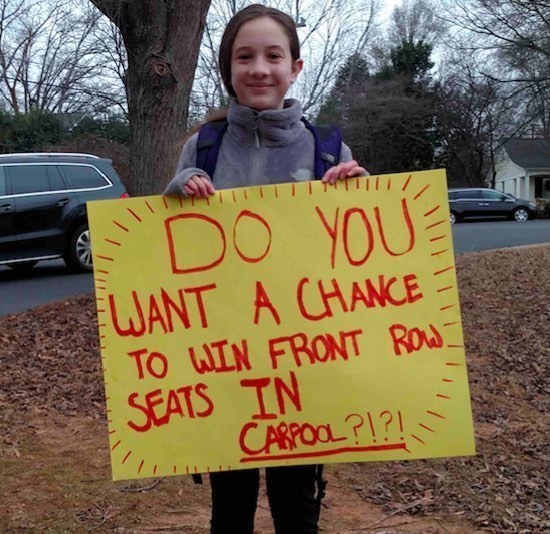 DO YOU
WANT A CHANCE
TO WIN FRONT ROW
SEATS IN
CARPOOL?!?!